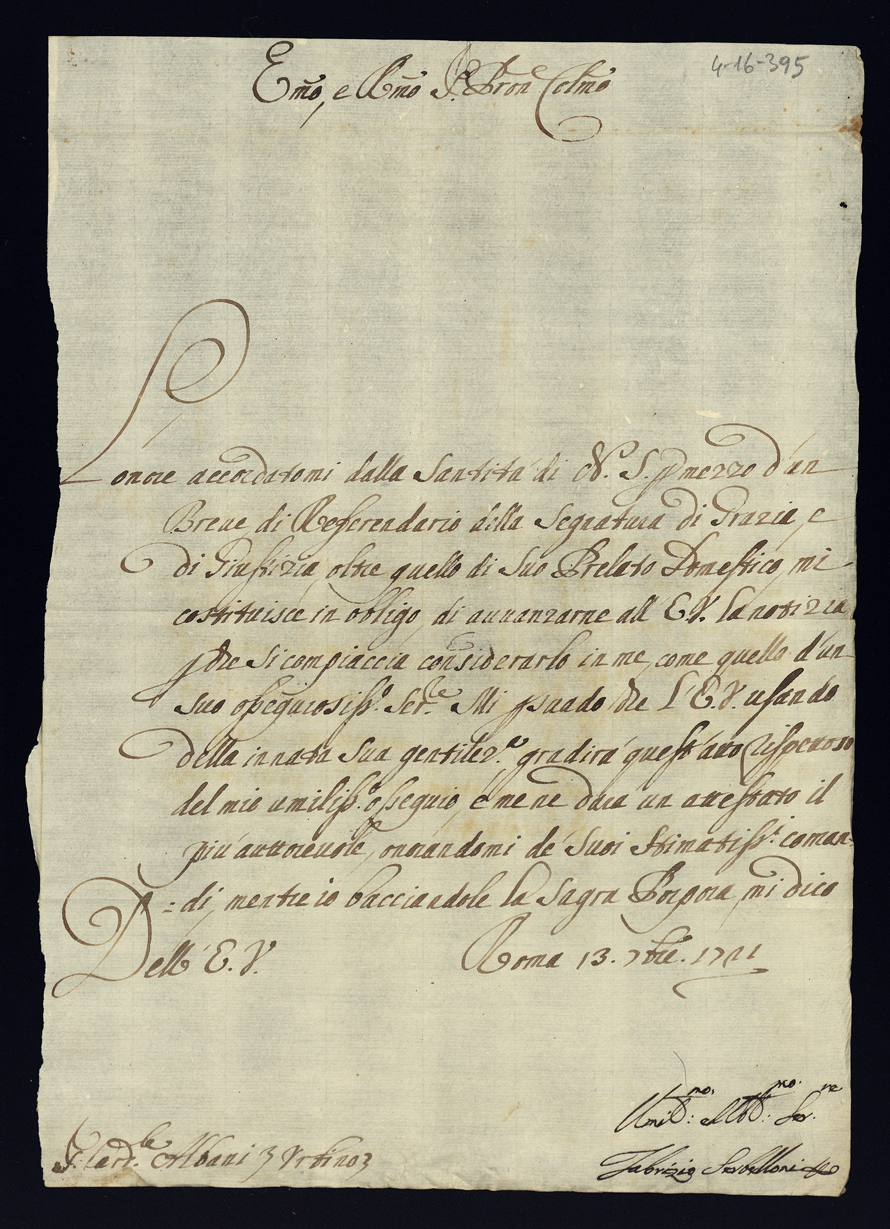 4-16-395
Emo, e Rmo Sr. Pron Colmo
L'onore accordatomi dalla Santità di N. S. p mezzo d'un
Breue di Referendario della Segnatura di Grazia, e
di Giustizia, oltre quello di Suo Prelato Domestico, mi
costituisce in obligo, di auuanzarne all' E.V. la notizia,
pche si compiaccia considerarlo in me, come quello d'un
suo ossequiosiss.o Ser.re Mi psuado che L'E.V. usando
della innata Sua gentilez.a gradirà quest' atto rispettoso
del mio umiliss.o ossequio, e me ne darà un attestato il
più auttoreuole, onorandomi de' Suoi Stimatiss.i coman=
=di, mentre io bacciandole la Sagra Porpora, mi dico
Dell' E. V. Roma 13. 7bre.
Umil.mo: ed Obb.mo: Ser.re
Sr. Card.le Albani
Fabrizio Serbelloni